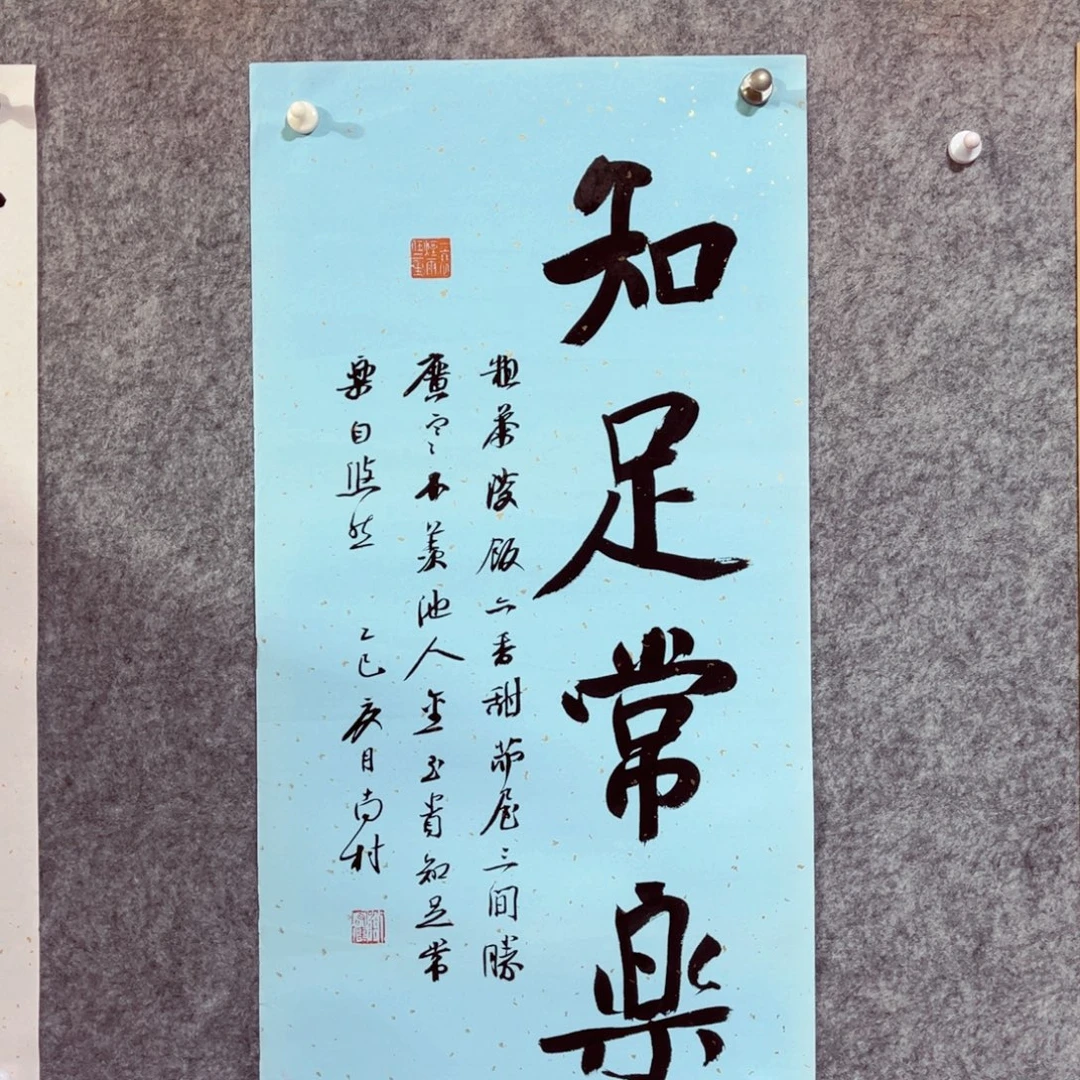 知足常樂
粗茶淡飯亦香甜茆屋三间勝
廣寒不羡他人金玉貴知足常
樂自悠然 乙巳亥月尚村